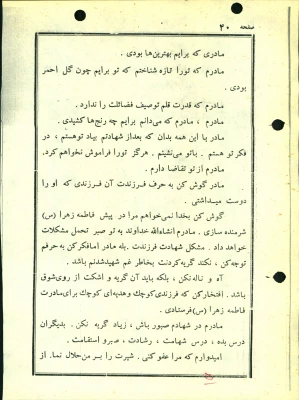 صفحه ۴۰
مادری که برایم بهترین‌ها بودی .
مادرم که تورا تازه شناختم که تو برایم چون گل احمر
بودی .
مادرم که قدرت قلم توصیف فضائلت را ندارد .
مادرم ، مادرم که می‌دانم برایم چه رنج‌ها کشیدی .
مادر با این همه بدان که بعداز شهادتم بیاد توهستم ، در
فکر تو هستم . باتو می‌نشینم . هرگز تورا فراموش نخواهم کرد.
مادرم از تو تقاضا دارم .
مادر گوش کن به حرف فرزندت آن فرزندی که او را
دوست میداشتی .
گوش کن بخدا نمی‌خواهم مرا در پیش فاطمه زهرا (س)
شرمنده سازی . مادرم انشاءالله خداوند به تو صبر تحمل مشکلات
خواهد داد . مشکل شهادت فرزندت . بله مادر امافکرکن به حرفم
توجه کن ، نکند گریه کردنت بخاطر غم شهیدشدنم باشد .
آه و ناله نکن ، بلکه باید آن گریه و اشکت از روی شوق
باشد . افتخارکن که فرزندی کوچك وهدیه‌ای کوچك برای مادرت
فاطمه زهرا (س) فرستادی .
مادرم در شهادتم صبور باش ، زیاد گریه نکن . بدیگران
درس بده ، درس شهامت ، رشادت ، صبر و استقامت .
امیدوارم که مرا عفو کنی . شیرت را بر من حلال نما. از